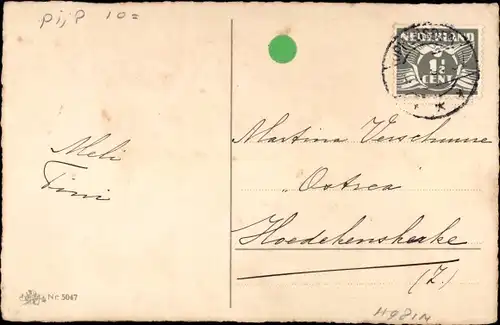 pijp 10=
NEDERLAND
1½
CENT
Meli
Fini
Martina Verschuure
"Ostrea"
Hoedekenskerke
(Z.)
Nr. 5047